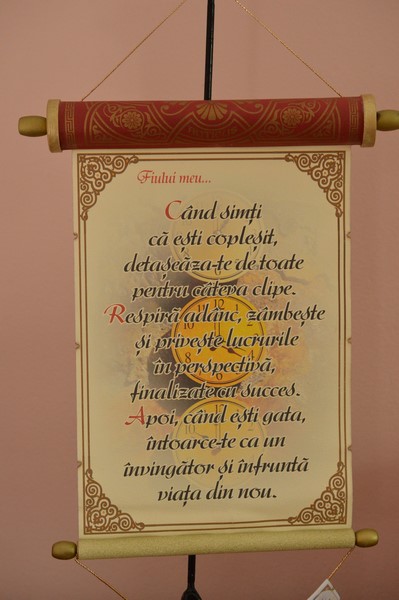 Fiului meu...
Când simți
că ești copleșit,
detașeăza-te de toate
pentru câteva clipe.
Respiră adânc, zâmbește
și privește lucrurile
în perspectivă,
finalizate cu succes.
Apoi, când ești gata,
întoarce-te ca un
învingător și înfruntă
viața din nou.